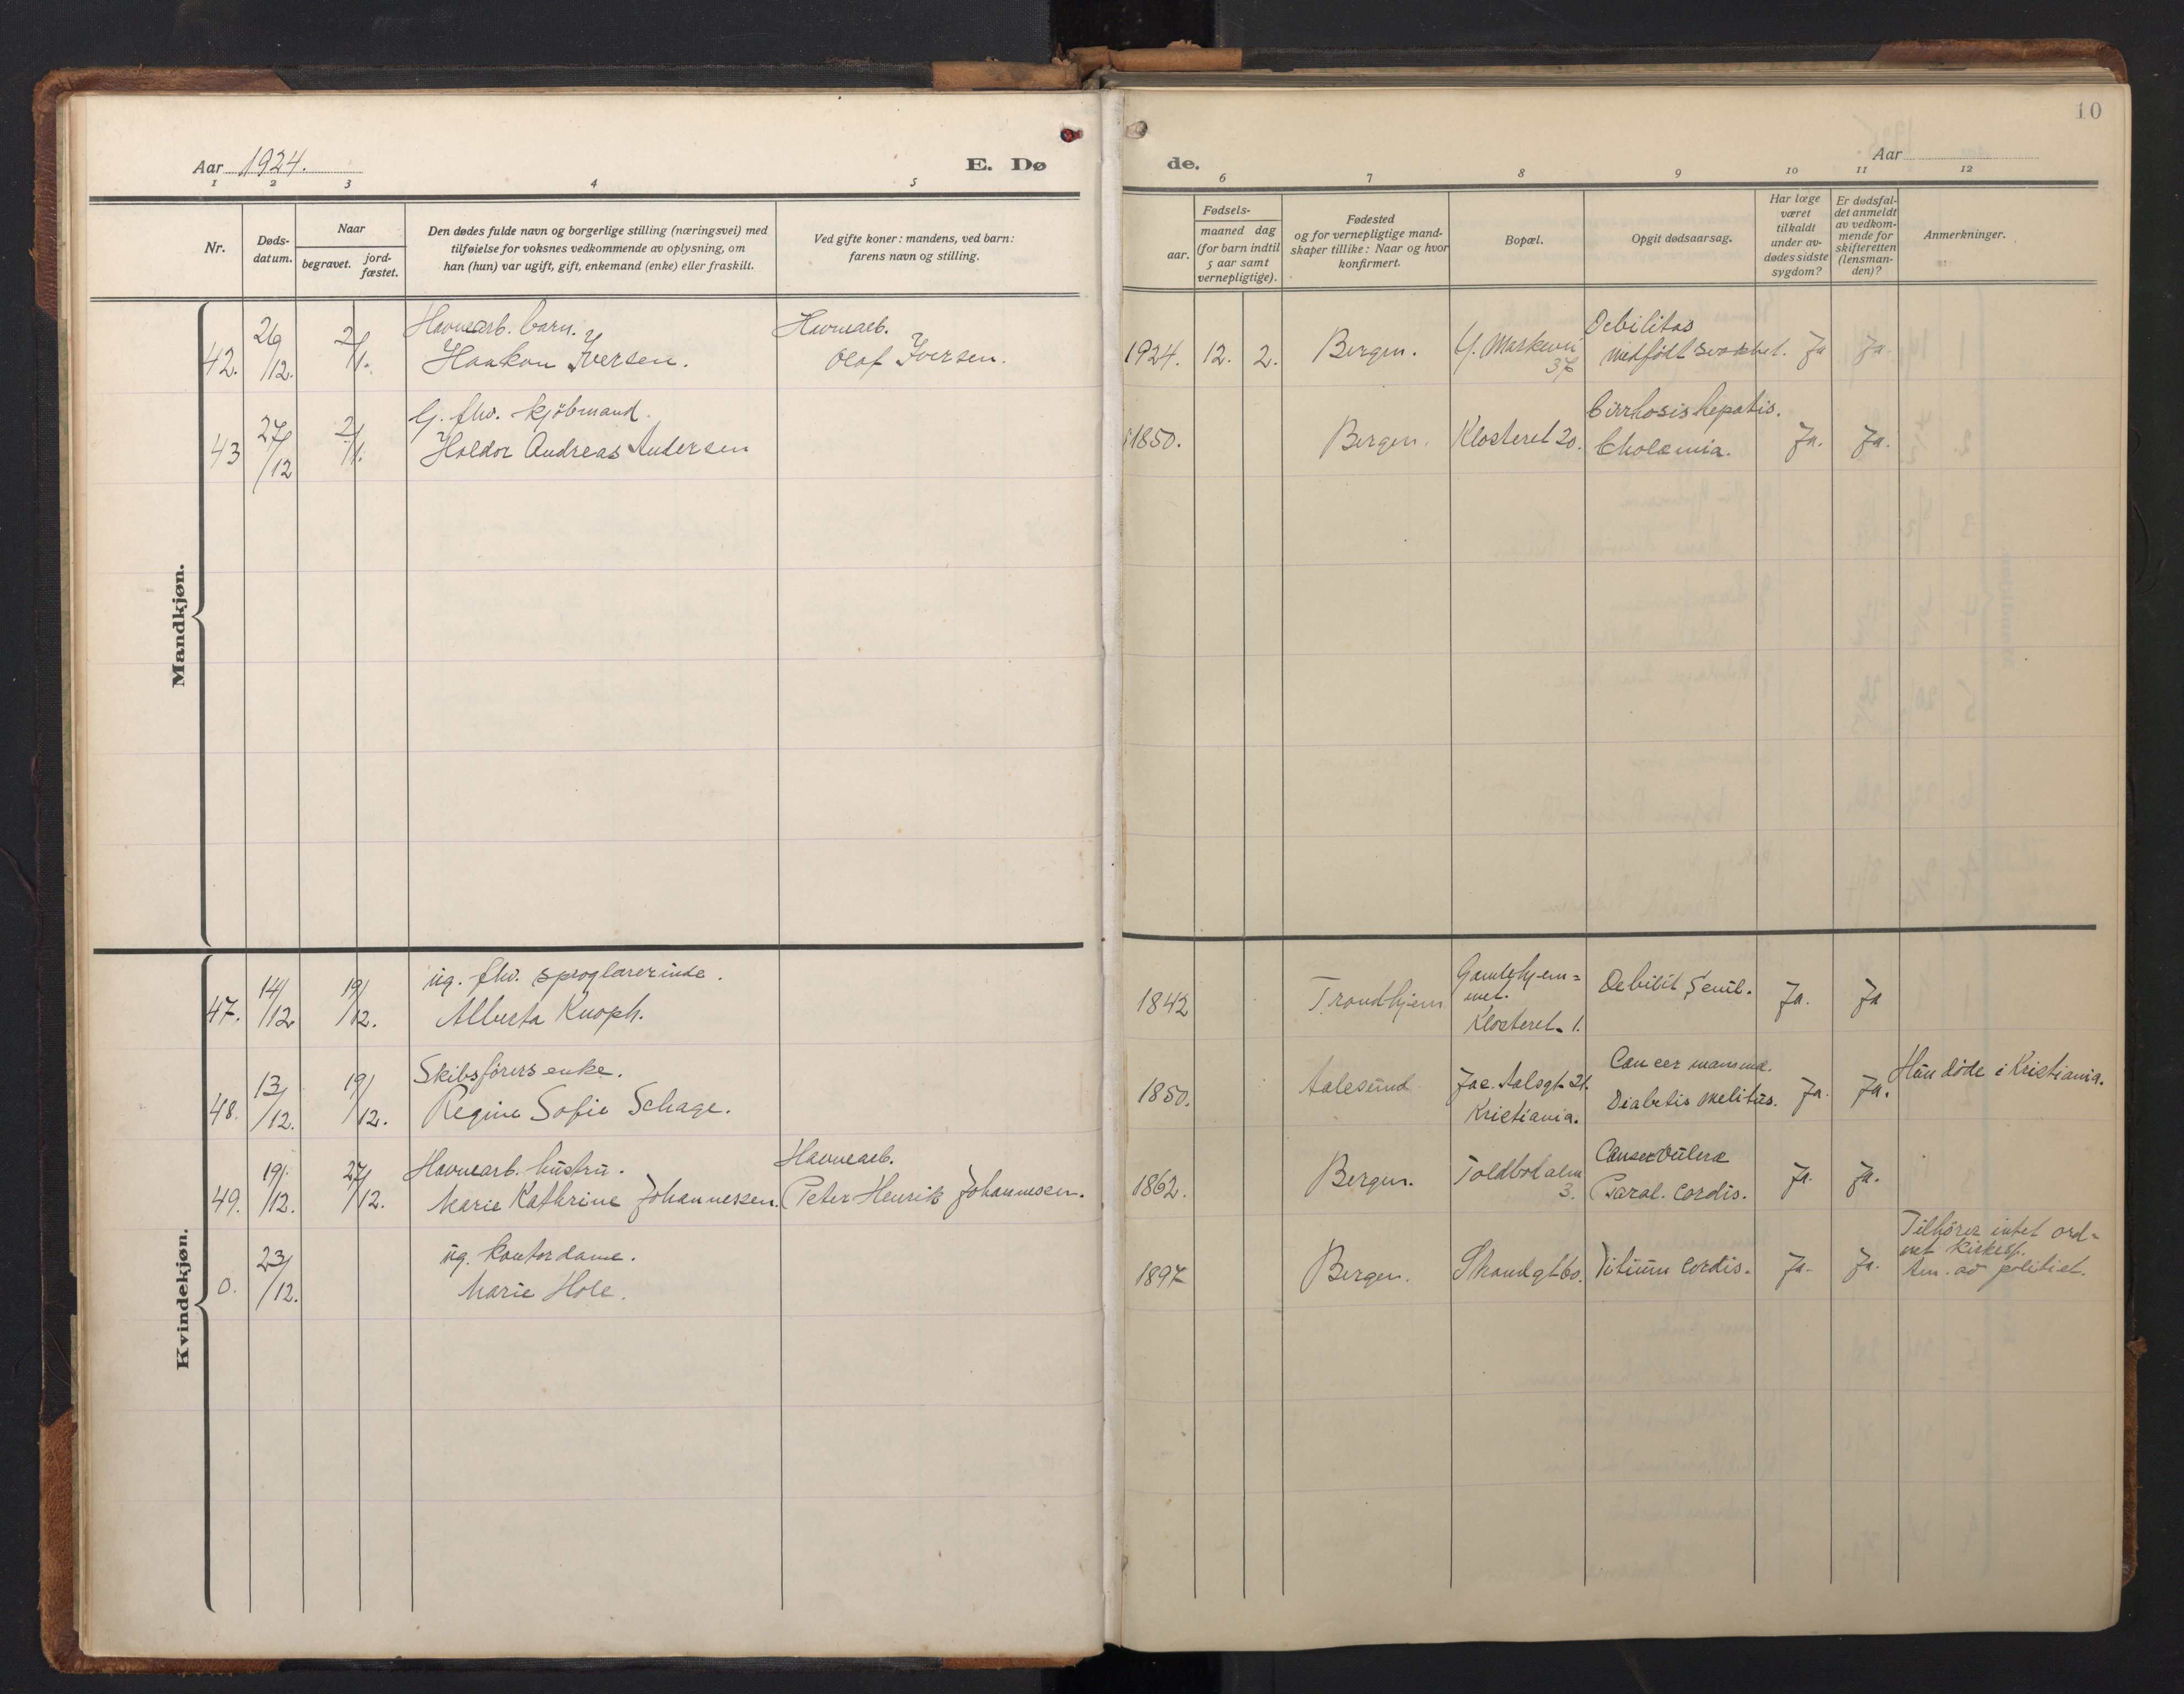 10
Aar 1924.
E. Dø
de.
Aar
1 2 3 4 5
6 7 8 9 10 11 12
Nr.
Døds-
datum.
Naar
begravet.
jord-
fæstet.
Den dødes fulde navn og borgerlige stilling (næringsvei) med
tilføielse for voksnes vedkommende av oplysning, om
han (hun) var ugift, gift, enkemand (enke) eller fraskilt.
Ved gifte koner: mandens, ved barn:
farens navn og stilling.
Fødsels-
aar.
maaned dag
(for barn indtil
5 aar samt
vernepligtige).
Fødested
og for vernepligtige mand-
skaper tillike: Naar og hvor
konfirmert.
Bopæl.
Opgit dødsaarsag.
Har læge
været
tilkaldt
under av-
dødes sidste
sygdom?
Er dødsfal-
det anmeldt
av vedkom-
mende for
skifteretten
(lensman-
den)?
Anmerkninger.
Mandkjøn.
42. 26/12. 2/1. Havnearb. barn.
Haakon Iversen.
Havnearb.
Olaf Iversen.
1924. 12. 2. Bergen. Y. Markevei
37
Debilitas
medfödt svakhet. Ja Ja
43 27/12 2/1. G. fhv. kjöbmand.
Haldor Andreas Andersen
1850. Bergen. Klosteret 20. Cirrhosis hepatis.
Cholæmia. Ja. Ja.
Kvindekjøn.
47. 14/12 19/12. ug. fhv. sproglærerinde.
Alberta Knoph.
1842 Trondhjem Gamlehjem=
met.
Klosteret 1.
Debilit Senil. Ja. Ja
48. 13/12. 19/12. Skibsförers enke.
Regine Sofie Schage.
1850. Aalesund Jac. Aalsgt 21.
Kristiania.
Cancer mamma.
Diabetis melitus. Ja. Ja.
Hun döde i Kristiania.
49. 19/12. 27/12. Havnearb. hustru.
Marie Kathrine Johannessen.
Havnearb.
Peter Henrik Johannessen.
1862. Bergen. Toldbodalm
3.
Cancer Vulera
Paral. Cordis. Ja. Ja.
0. 23/12. ug. kontordame.
Marie Hole.
1897 Bergen. Strandgt 60. Vitium Cordis. Ja. Ja.
Tilhörer intet ord=
net kirkesf.
Am. av politiet.